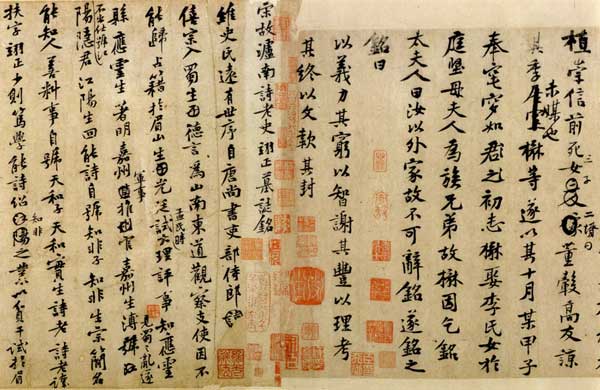 植崇信前死女三子二壻曰董毅高友諒
其季未媒也楙等遂以其十月某甲子
奉窀穸如君之初志楙娶李氏女於
庭堅母夫人為族兄弟故楙因乞銘
太夫人曰汝以外家故不可辭銘遂銘之
銘曰
以義力其窮以智謝其豐以理考
其終以文款其封
宋故瀘南詩老史翊正墓誌銘
維史氏遠有世序自唐尚書吏部侍郎儼
僖宗入蜀生德言為山南東道觀察支使因不
能歸占籍於眉山生光廷試大理評事知應靈
孟氏時
縣應靈生著明嘉州軍事推官嘉州生溥號江
見蜀之亂遂
不出仕
陽隱君江陽生回能詩自號知非子知非生宗簡名
能知人善料事自號天和子天和實生詩老詩老諱
扶字翊正少則篤學能詩紹知非之業以貢干試於眉